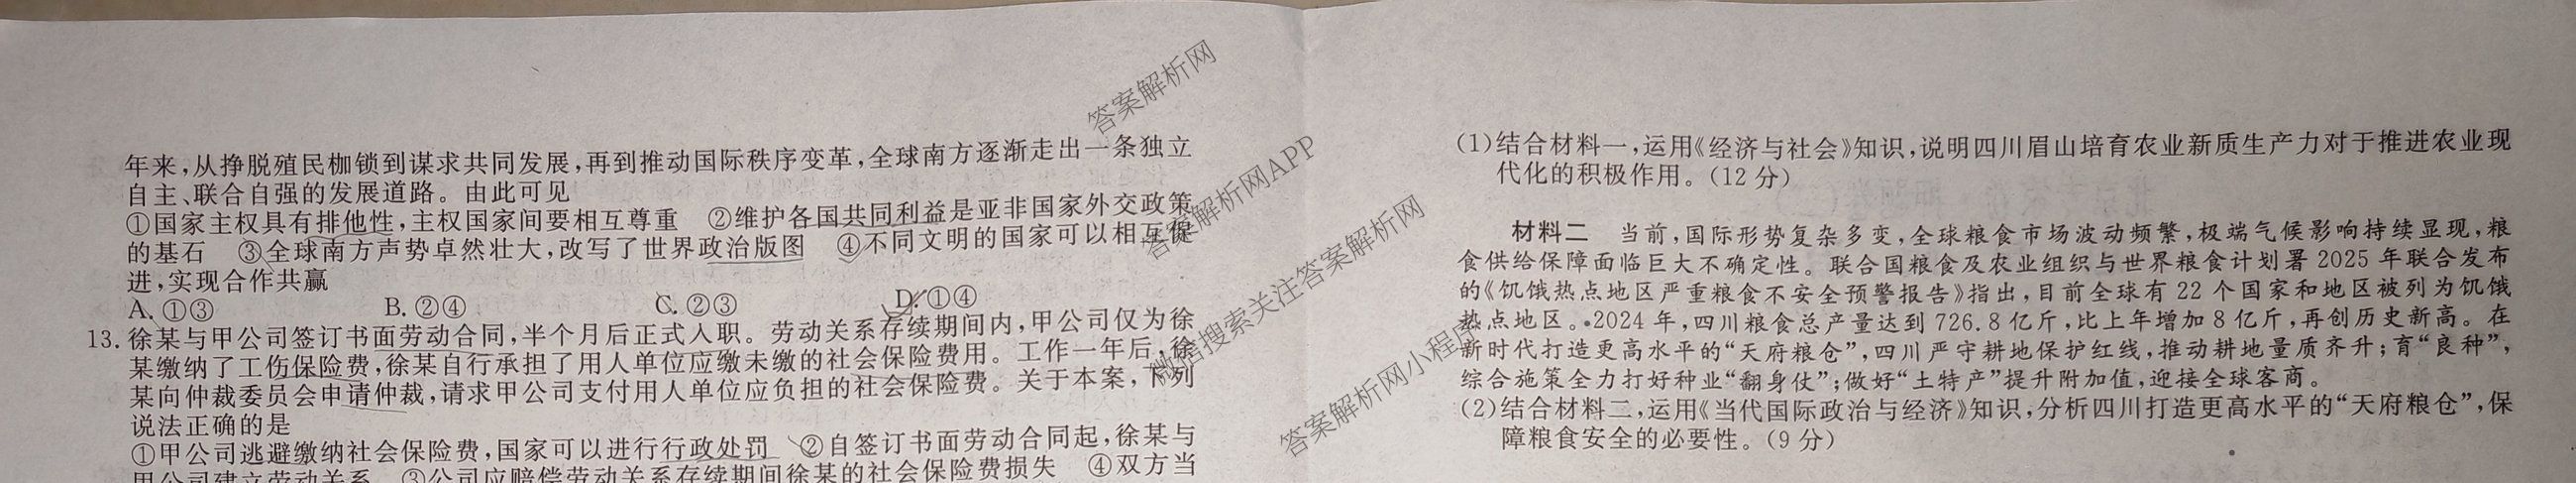 年来,从挣脱殖民枷锁到谋求共同发展,再到推动国际秩序变革,全球南方逐渐走出一条独立
自主、联合自强的发展道路。由此可见
①国家主权具有排他性,主权国家间要相互尊重 ②维护各国共同利益是亚非国家外交政策
的基石 ③全球南方声势卓然壮大,改写了世界政治版图 ④不同文明的国家可以相互促
进,实现合作共赢
A. ①③ B. ②④ C. ②③ D. ①④
13. 徐某与甲公司签订书面劳动合同,半个月后正式入职。劳动关系存续期间内,甲公司仅为徐
某缴纳了工伤保险费,徐某自行承担了用人单位应缴未缴的社会保险费用。工作一年后,徐
某向仲裁委员会申请仲裁,请求甲公司支付用人单位应负担的社会保险费。关于本案,下列
说法正确的是
①甲公司逃避缴纳社会保险费,国家可以进行行政处罚 ②自签订书面劳动合同起,徐某与
甲公司建立劳动关系 ③公司应赔偿劳动关系存续期间徐某的社会保险费损失 ④双方当
(1)结合材料一,运用《经济与社会》知识,说明四川眉山培育农业新质生产力对于推进农业现
代化的积极作用。(12分)
材料二 当前,国际形势复杂多变,全球粮食市场波动频繁,极端气候影响持续显现,粮
食供给保障面临巨大不确定性。联合国粮食及农业组织与世界粮食计划署2025年联合发布
的《饥饿热点地区严重粮食不安全预警报告》指出,目前全球有22个国家和地区被列为饥饿
热点地区。2024年,四川粮食总产量达到726.8亿斤,比上年增加8亿斤,再创历史新高。在
新时代打造更高水平的“天府粮仓”,四川严守耕地保护红线,推动耕地量质齐升;育“良种”,
综合施策全力打好种业“翻身仗”;做好“土特产”提升附加值,迎接全球客商。
(2)结合材料二,运用《当代国际政治与经济》知识,分析四川打造更高水平的“天府粮仓”,保
障粮食安全的必要性。(9分)
答案解析网
答案解析网APP
微信搜索关注答案解析网
答案解析网小程序